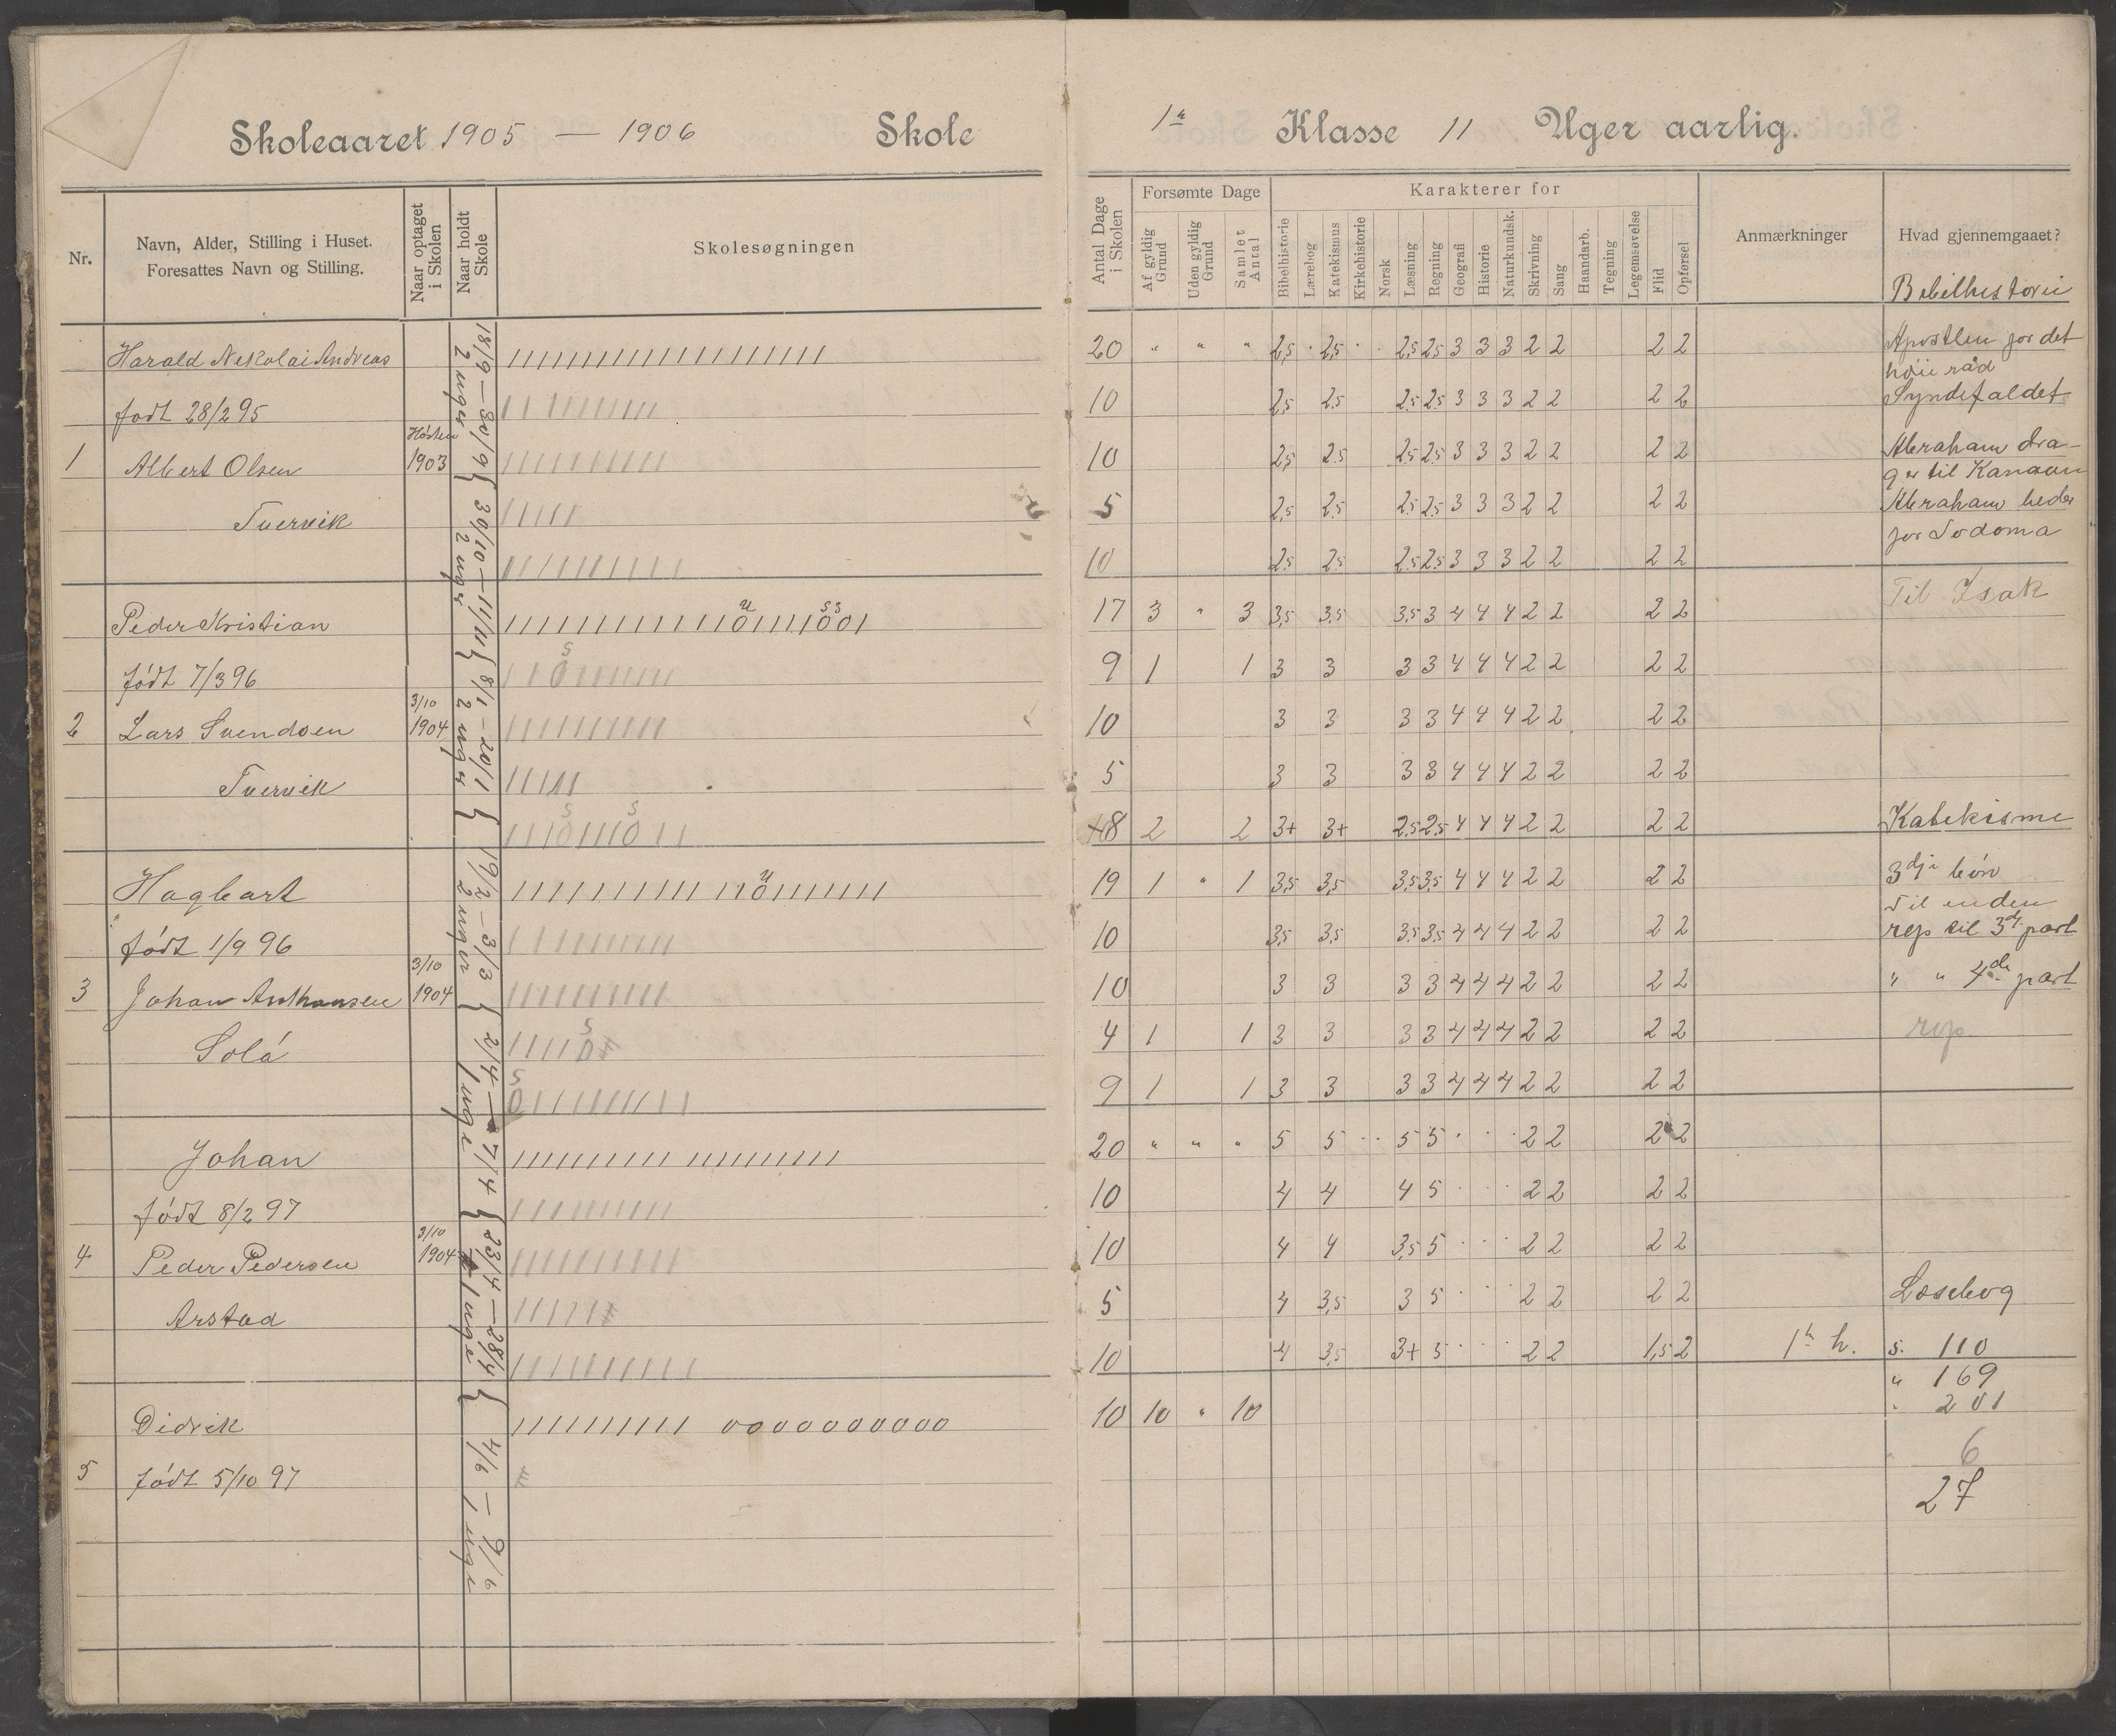 Skoleaaret 1905 — 1906 Skole
Nr.
Navn, Alder, Stilling i Huset.
Foresattes Navn og Stilling.
Naar optaget
i Skolen
Naar holdt
Skole
Skolesøgningen
18/9 — 30/9 { 30/10 — 11/11 { 8/1 – 20/1 { 19/2 – 3/3 { 2/4 — 7/4 { 23/4 — 28/4 { 4/6 — 9/6
2 uger 2 uger 2 uger 2 uger 1 uge 1 uge 1 uge
Harald Nekolai Andreas
født 28/2 95
Høsten
1 Albert Olsen 1903
Tvervik
Peder Kristian
født 7/3 96
3/10
2 Lars Svendsen 1904
Tvervik
Hagbart
født 1/9 96
3/10
3 Johan Anthonsen 1904
Solå
Johan
født 8/2 97
3/10
4 Peder Pedersen 1904
Arstad
Didrik
5 født 5/10 97
1ste Klasse 11 Uger aarlig.
Antal Dage
i Skolen
Forsømte Dage
Af gyldig
Grund
Uden gyldig
Grund
Samlet
Antal
Karakterer for
Bibelhistorie
Lærebog
Katekismus
Kirkehistorie
Norsk
Læsning
Regning
Geografi
Historie
Naturkundsk.
Skrivning
Sang
Haandarb.
Tegning
Legemsøvelse
Flid
Opførsel
Anmærkninger
Hvad gjennemgaaet?
20 " " " 2,5 2,5 2,5 2,5 3 3 3 2 2 2 2
10 2,5 2,5 2,5 2,5 3 3 3 2 2 2 2
10 2,5 2,5 2,5 2,5 3 3 3 2 2 2 2
5 2,5 2,5 2,5 2,5 3 3 3 2 2 2 2
10 2,5 2,5 2,5 2,5 3 3 3 2 2 2 2
17 3 " 3 3,5 3,5 3,5 3 4 4 4 2 2 2 2
9 1 1 3 3 3 3 4 4 4 2 2 2 2
10 3 3 3 3 4 4 4 2 2 2 2
5 3 3 3 3 4 4 4 2 2 2 2
8 2 2 3+ 3+ 2,5 2,5 4 4 4 2 2 2 2
19 1 " 1 3,5 3,5 3,5 3,5 4 4 4 2 2 2 2
10 3,5 3,5 3,5 3,5 4 4 4 2 2 2 2
10 3 3 3 3 4 4 4 2 2 2 2
4 1 1 3 3 3 3 4 4 4 2 2 2 2
9 1 1 3 3 3 3 4 4 4 2 2 2 2
20 " " " 5 5 5 5 2 2 2 2
10 4 4 4 5 2 2 2 2
10 4 4 3,5 5 2 2 2 2
5 4 3,5 3 5 2 2 2 2
10 4 3,5 3+ 5 2 2 1,5 2 h.
10 10 " 10
Bibelhistorie
Apostlen for det
høie råd
Syndefaldet
Abraham dra-
ger til Kanaan
Abraham beder
for Sodoma
Til Isak
Katekisme
3dje bøn
Til enden
rep til 3dje part
" " 4de part
rep
Læsebog
s. 110
" 169
" 201
6
27